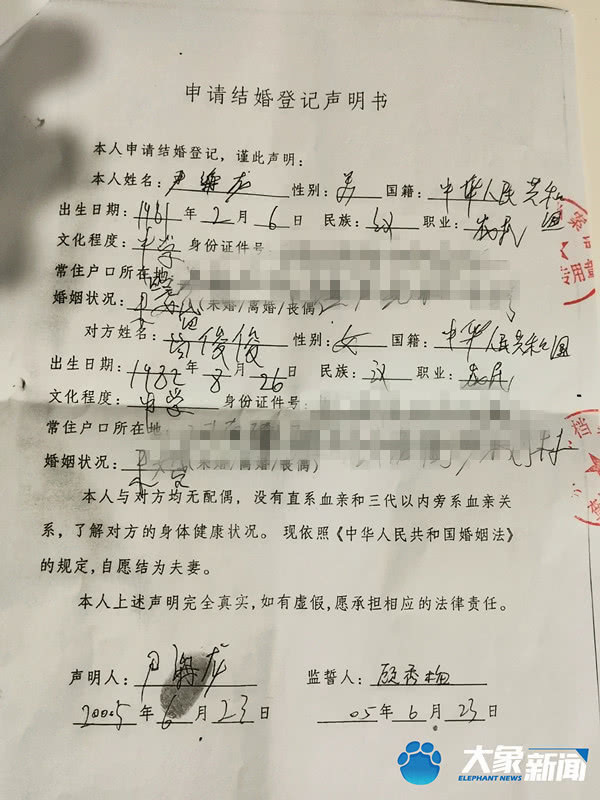 申请结婚登记声明书
本人申请结婚登记,谨此声明:
本人姓名:尹海龙 性别:男 国籍:中华人民共和国
出生日期:1961年2月6日 民族:汉 职业:农民
文化程度:中学 身份证件号
常住户口所在地:
婚姻状况:(未婚/离婚/丧偶)
对方姓名:俊俊 性别:女 国籍:中华人民共和国
出生日期:1982年8月26日 民族:汉 职业:农民
文化程度:中学 身份证件号:
常住户口所在地:
婚姻状况:(未婚/离婚/丧偶)
本人与对方均无配偶,没有直系血亲和三代以内旁系血亲关
系,了解对方的身体健康状况。现依照《中华人民共和国婚姻法》
的规定,自愿结为夫妻。
本人上述声明完全真实,如有虚假,愿承担相应的法律责任。
声明人:尹海龙 监誓人:顾秀梅
2005年6月23日 05年6月23日
专用章
档
大象新闻
ELEPHANT NEWS